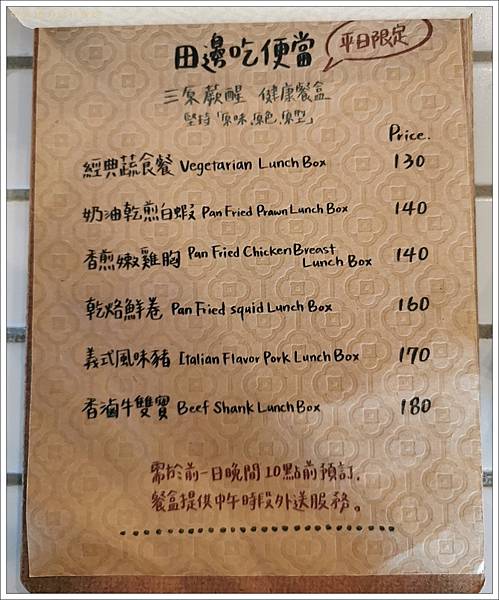 田邊吃便當
平日限定
三原蕨醒 健康餐盒
堅持「原味、原色、原型」
Price.
經典蔬食餐 Vegetarian Lunch Box 130
奶油乾煎白蝦 Pan Fried Prawn Lunch Box 140
香煎嫩雞胸 Pan Fried Chicken Breast Lunch Box 140
乾烙鮮卷 Pan Fried squid Lunch Box 160
義式風味豬 Italian Flavor Pork Lunch Box 170
香滷牛雙寶 Beef Shank Lunch Box 180
需於前一日晚間10點前預訂.
餐盒提供中午時段外送服務。